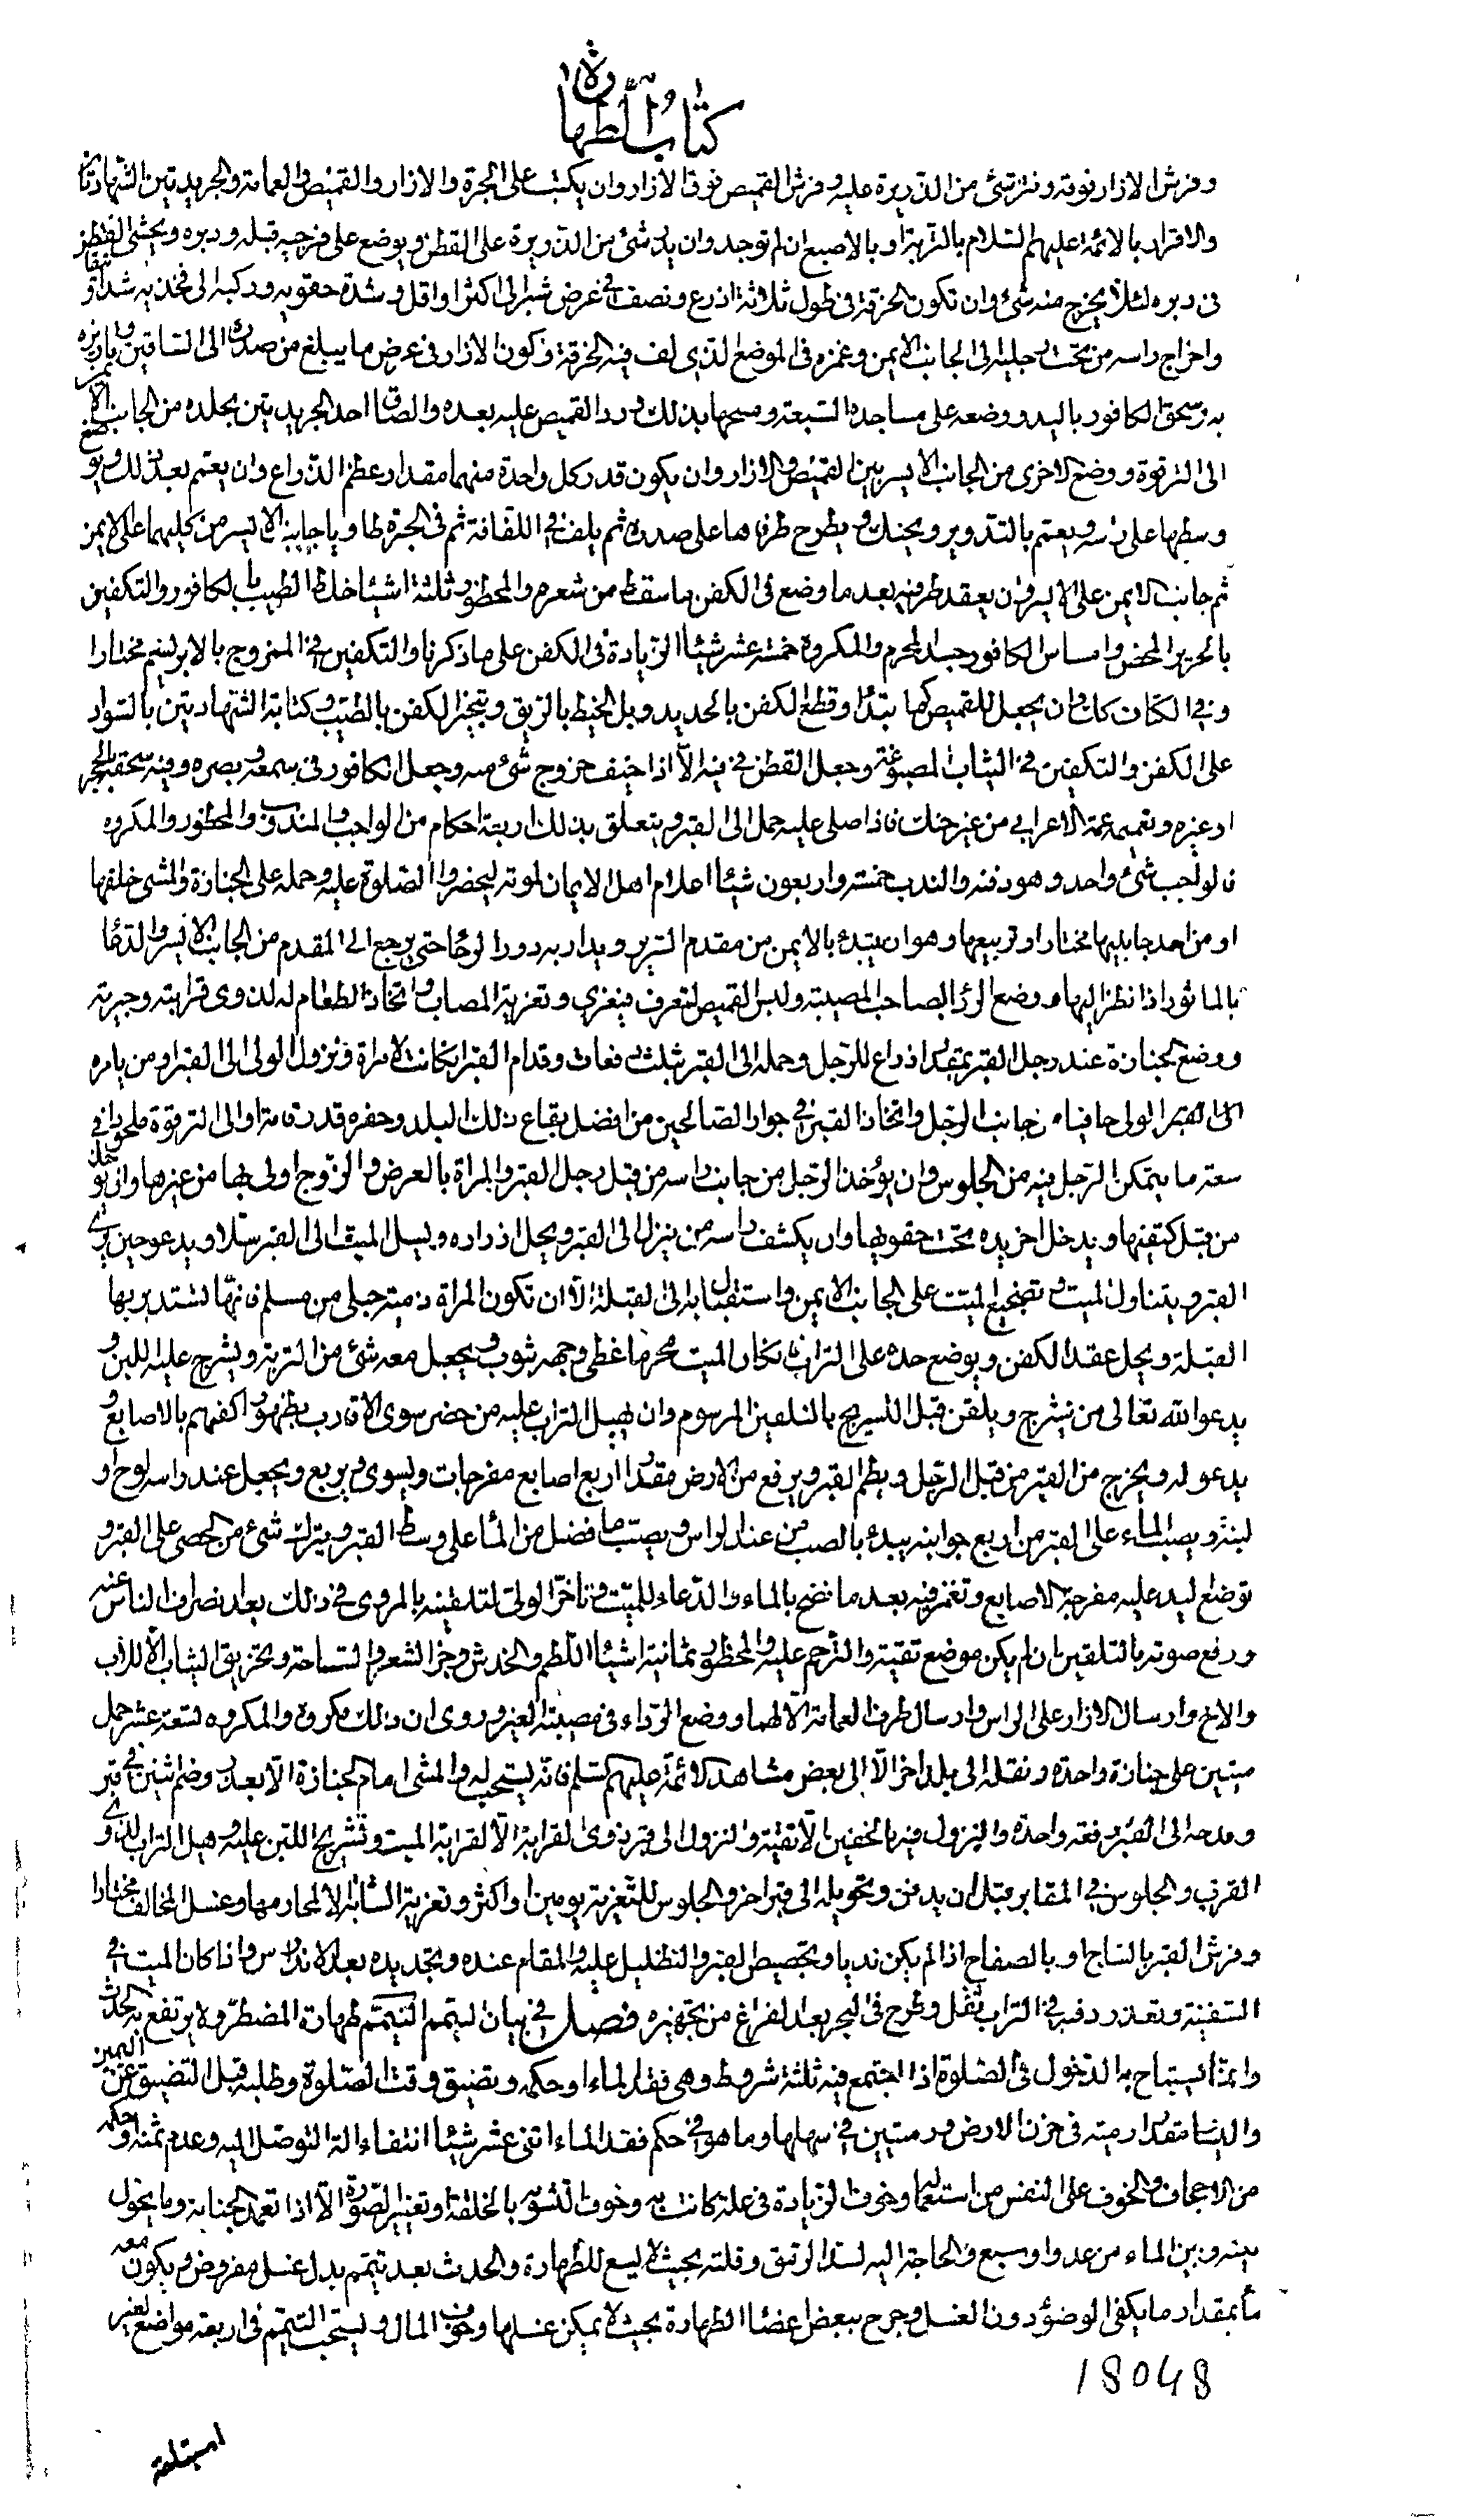 كتاب الطهارة
وفرش الازار فوقه ونثر شئ من الذريرة عليه وفرش القميص فوق الازار وان يكتب على الحبرة والازار والقميص والعمامة والجريدتين الشهادتان
والاقرار بالائمة عليهم السلام بالتربة او بالاصبع ان لم توجد وان يذر شئ من الذريرة على القطن ويوضع على فرجيه قبله ودبره ويحشى القطن
فى دبره لئلا يخرج منه شئ وان تكون الخرقة فى طول ثلاثة اذرع ونصف فى عرض شبر الى اكثر او اقل وشدة حقويه وركبه الى فخذيه شدا وثيقا
واخراج راسه من تحت رجليه الى الجانب الايمن وغمزه فى الموضع الذى لف فيه الخرقة وكون الازار فى عرض ما يبلغ من صدره الى الساقين وتازيره
به وسحق الكافور باليد ووضعه على مساجده السبعة ومسحها بذلك ورد القميص عليه بعده والصاق احد الجريدتين بجلده من الجانب الايمن
الى الترقوة ووضع الاخرى من الجانب الايسر بين القميص والازار وان يكون قدر كل واحدة منهما مقدار عظم الذراع وان يعتم بعد ذلك ويوضع
وسطها على راسه ويعتم بالتدوير ويحنك ويطرح طرفاها على صدره ثم يلف فى اللفافة ثم فى الحبرة طاويا جانبه الايسر من كليهما على الايمن
ثم جانبه الايمن على الايسر وان يعقد طرفيه بعد ما وضع فى الكفن ما سقط من شعره والمحظور ثلثة اشيئا خلط الطيب بالكافور والتكفين
بالحرير المحض وامساس الكافور جسد المحرم والمكروه خمسة عشر شيئا الزيادة فى الكفن على ما ذكرنا والتكفين فى الممزوج بالابريسم مختارا
وفى الكتان كان وان يجعل للقميص كما مبتدا وقطع الكفن بالحديد وبل الخيط بالريق وتبخير الكفن بالطيب وكتابة الشهادتين بالسواد
على الكفن والتكفين فى الثياب المصبوغة وجعل القطن فى فيه الا اذا خيف خروج شئ منه وجعل الكافور فى سمعه وبصره وفيه وسحقه بالحجر
او غيره وتعميمه عمة الاعرابى من غير حنك فاذا صلى عليه حمل الى القبر ويتعلق بذلك اربعة احكام من الواجب والمندوب والمحظور والمكروه
فالواجب شئ واحد وهو دفنه والندب خمسة واربعون شيئا اعلام اهل الايمان لموته ليحضروا الصلوة عليه وحمله على الجنازة والمشى خلفها
او من احد جانبيها مختارا وتربيعها وهو ان يبتدء بالايمن من مقدم السرير ويدار به دور الرحا حتى يرجع الى المقدم من الجانب الايسر والدعا
بالماثور اذا نظر اليها ووضع الرداء لصاحب المصيبة ولبس القميص لتعرف فيعزى وتعزية المصاب واتخاذ الطعام له لذوى قرابته وجيرته
ووضع الجنازة عند رجل القبر بمقدار ذراع للرجل وحمله الى القبر بثلث دفعات وقدام القبر ان كانت لامراة ونزول الولى الى القبر او من يامره
الى القبر الولى حافيا من جانب الرجل واتخاذ القبر فى جوار الصالحين من افضل بقاع ذلك البلد وحفره قدر قامة او الى الترقوة ملحودا فى
سعة ما يتمكن الرجل فيه من الجلوس وان يؤخذ الرجل من جانب راسه من قبل رجل القبر والمراة بالعرض والزوج اولى بها من غيرها وان تؤخذ
من قبل كتفيها ويدخل اخر يده تحت حقويها وان يكشف راسه من ينزل الى القبر ويحل ازراره ويسل الميت الى القبر سلا ويدعو حين يرى
القبر ويتناول الميت وتضجيع الميت على الجانب الايمن واستقباله الى القبلة الا ان تكون المراة ذمية حبلى من مسلم فانها تستدبر بها
القبلة ويحل عقد الكفن ويوضع خده على التراب فان كان الميت محرما غطى وجهه بثوب ويجعل معه شئ من التربة ويشرج عليه اللبن و
يدعو الله تعالى من يشرج ويلقن قبل التشريج بالتلقين المرسوم وان يهيل التراب عليه من حضر سوى الاقارب بظهور اكفهم بالاصابع و
يدعو له ويخرج من القبر من قبل الرجل ويطم القبر ويرفع من الارض مقدار اربع اصابع مفرجات ويسوى ويربع ويجعل عند راسه لوح او
لبنة ويصب الماء على القبر من اربع جوانبه يبدء بالصب من عند الراس ويصب ما فضل من الماء على وسط القبر ويترك شئ من الحصى على القبر و
توضع اليد عليه مفرجة الاصابع وتغمز فيه بعد ما نضح بالماء والدعاء للميت وتاخر الولى لتلقينه بالمروى فى ذلك بعد انصراف الناس عنه
ورفع صوته بالتلقين ان لم يكن موضع تقية والترحم عليه والمحظور ثمانية اشيئا اللطم والخدش وجز الشعر والنياحة وتخريق الثياب الا للاب
والاخ وارسال الازار على الراس وارسال طرف العمامة الا لهما ووضع الرداء فى مصيبة الغير وروى ان ذلك مكروه والمكروه تسعة عشر حمل
ميتين على جنازة واحدة ونقله الى بلد اخر الا الى بعض مشاهد الائمة عليهم السلم فانه يستحب له والمشى امام الجنازة الا بعد وضم اثنين فى قبر
ومدحه الى القبر دفعة واحدة والنزول فيه بالخفين الا تقية والنزول الى قبر ذوى القرابة الا لقرابة الميت وتشريج اللبن عليه وهيل التراب لذوى
القربى والجلوس فى المقابر قبل ان يدفن وتحويله الى قبر اخر والجلوس للتعزية يومين او اكثر وتعزية الشابة الا لمحارمها وغسل المخالف مختارا
وفرش القبر بالساج او بالصفاح اذا لم يكن نديا وتجصيص القبر والتظليل عليه والمقام عنده وتجديده بعد الاندراس واذا كان الميت فى
السفينة وتعذر دفنه فى التراب ثقل وطرح فى البحر بعد الفراغ من تجهيزه فصل فى بيان التيمم التيمم طهارة المضطر ولا يرتفع به الحدث
وانما يستباح به الدخول فى الصلوة اذا اجتمع فيه ثلثة شروط وهى فقد الماء او حكمه وتضيق وقت الصلوة وطلبه قبل التضيق عن اليمين
واليسا مقدار رمية فى حزن الارض ورميتين فى سهلها وما هو فى حكم فقد الماء اثنى عشر شيئا انتفاء الة التوصل اليه وعدم ثمنه او حكمه
من الاجحاف والخوف على النفس من استعماله وخوف الزيادة فى علة كانت به وخوف التشويه بالخلقة وتغيير الصورة الا اذا تعمد الجنابة وما يحول
بينه وبين الماء من عدو او سبع والحاجة اليه لسد الرمق وقلته بحيث لا يسع للطهارة والحدث بعد تيمم بدل غسل مفروض ويكون معه
ماء بمقدار ما يكفى الوضوء دون الغسل وجرح ببعض اعضا الطهارة بحيث لا يمكن غسلها وخوف المال ويستحب التيمم فى اربعة مواضع لغير
18048